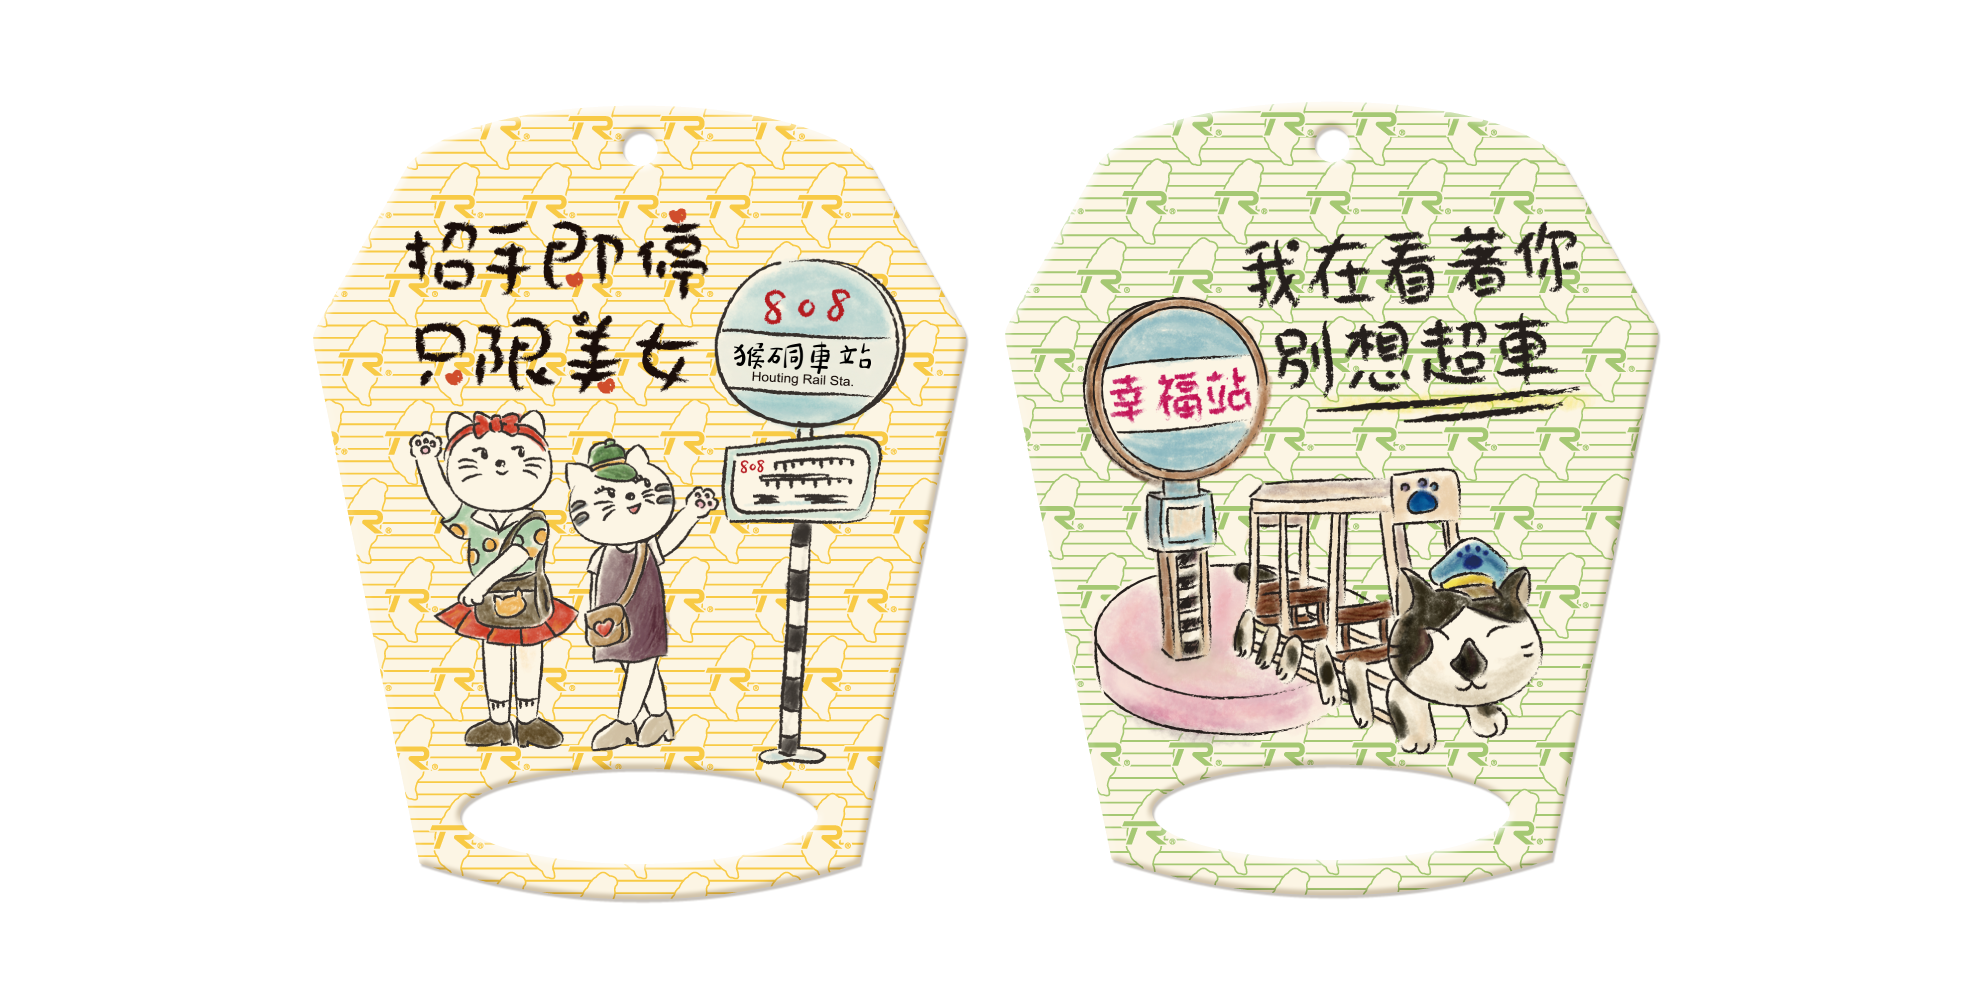 招手即停
只限美女
808
猴硐車站
Houting Rail Sta.
808
我在看著你
別想超車
幸福站
TR